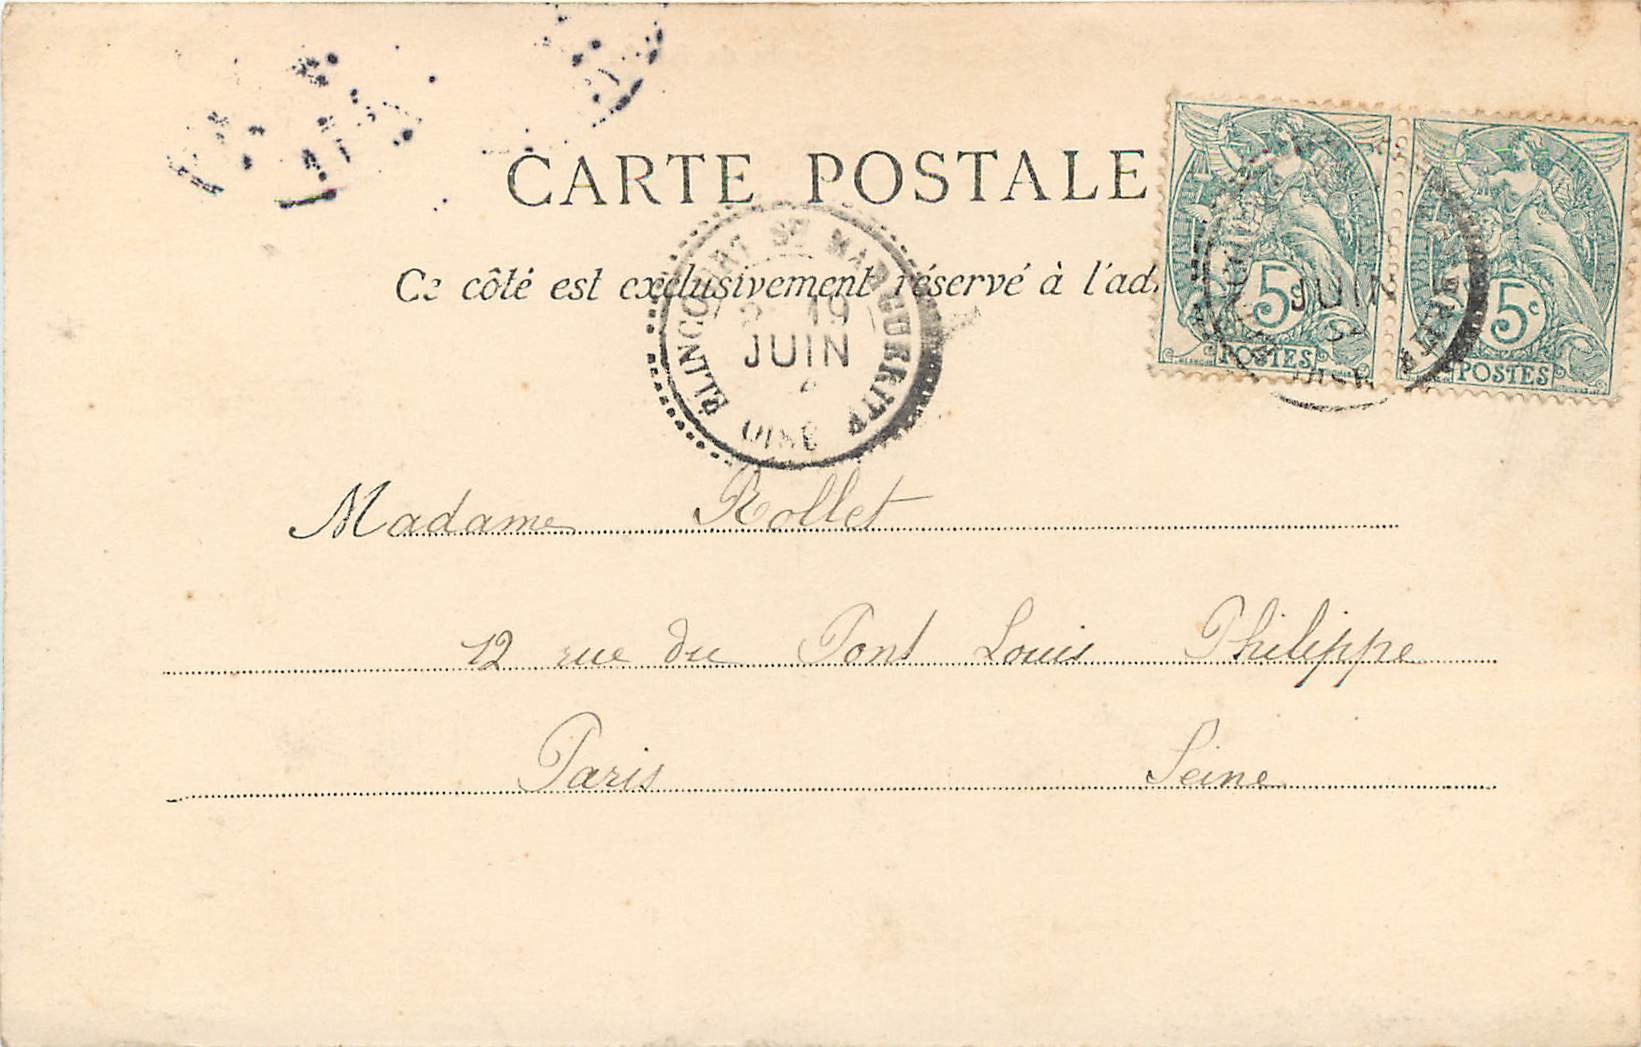 CARTE POSTALE
Ce côté est exclusivement réservé à l'ad
ÉLINCOURT STE MARGUERITE
19
JUIN
OISE
5c
POSTES
5c
POSTES
JUIN
Madame Rollet
12 rue du Pont Louis Philippe
Paris Seine